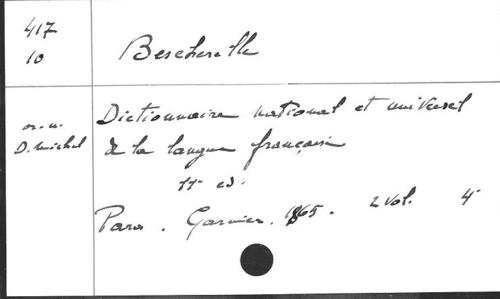 417
10
Bescherelle
Dictionnaire national et universel
D. Michel
de la langue française
11 ed.
Paris. Garnier. 1865. 2 vol. 4°